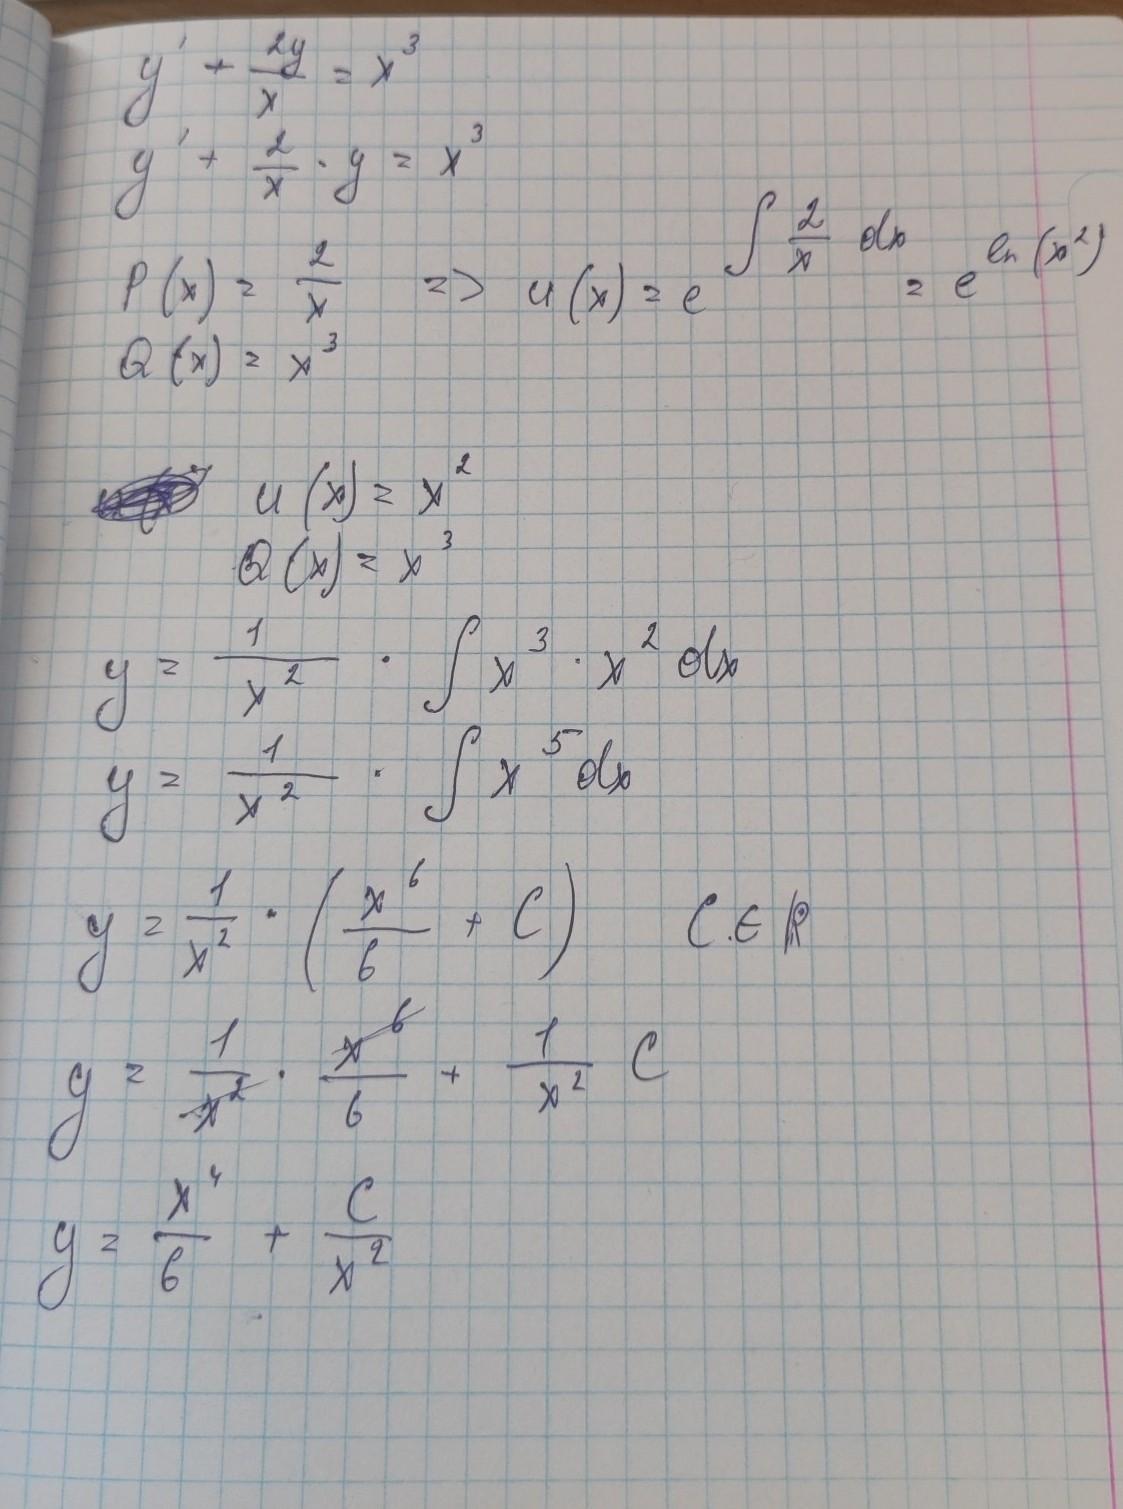 y' + 2y/x = x³
y' + 2/x · y = x³
P(x) = 2/x => u(x) = e^(∫ 2/x dx) = e^(ln(x²))
Q(x) = x³
u(x) = x²
Q(x) = x³
y = 1/x² · ∫ x³ · x² dx
y = 1/x² · ∫ x⁵ dx
y = 1/x² · (x⁶/6 + C) C ∈ ℝ
y = 1/x² · x⁶/6 + 1/x² C
y = x⁴/6 + C/x²